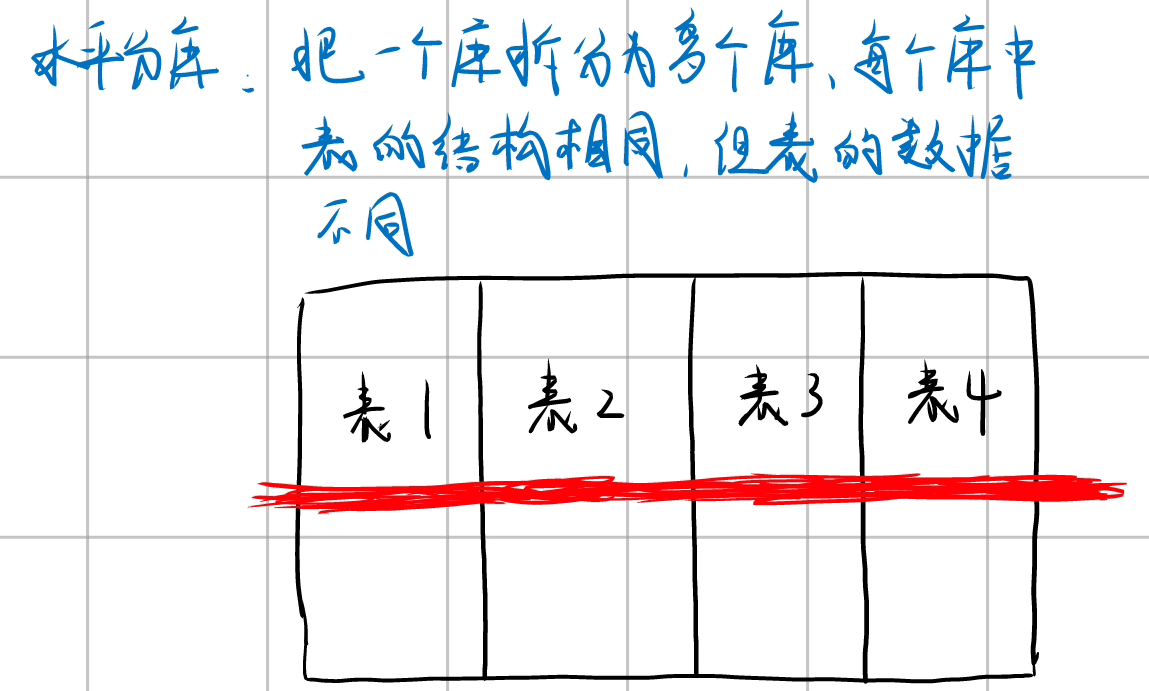 水平分库：把一个库拆分为多个库、每个库中
表的结构相同，但表的数据
不同
表1 表2 表3 表4